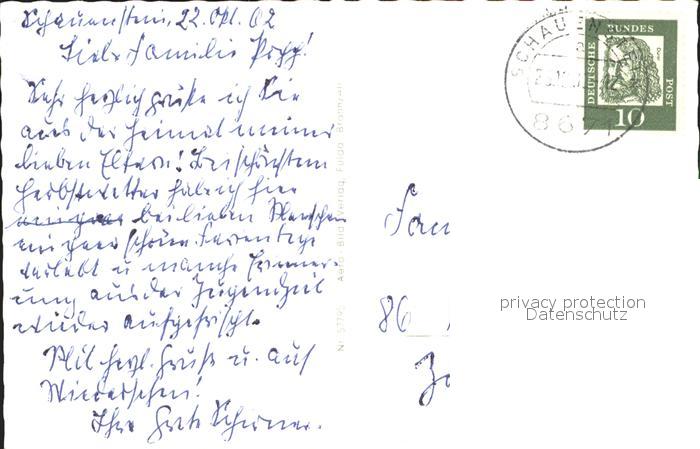 Schauenstein, 22. Okt. 62
Liebe Familie Popp!
Sehr herzlich grüße ich Sie
aus der Heimat meiner
lieben Eltern! Bei schönstem
Herbstwetter habe ich hier
bei lieben Menschen
schöne Ferientage
verlebt u. manche Erinner-
ung aus der Jugendzeit
wieder aufgefrischt.
Mit herzl. Gruß u. auf
Wiedersehen!
Ihre Grete
Nr. Aero-Bild-Verlag, Fulda
SCHAUENSTEIN
8671
DEUTSCHE BUNDESPOST
10
Fam
86
privacy protection
Datenschutz